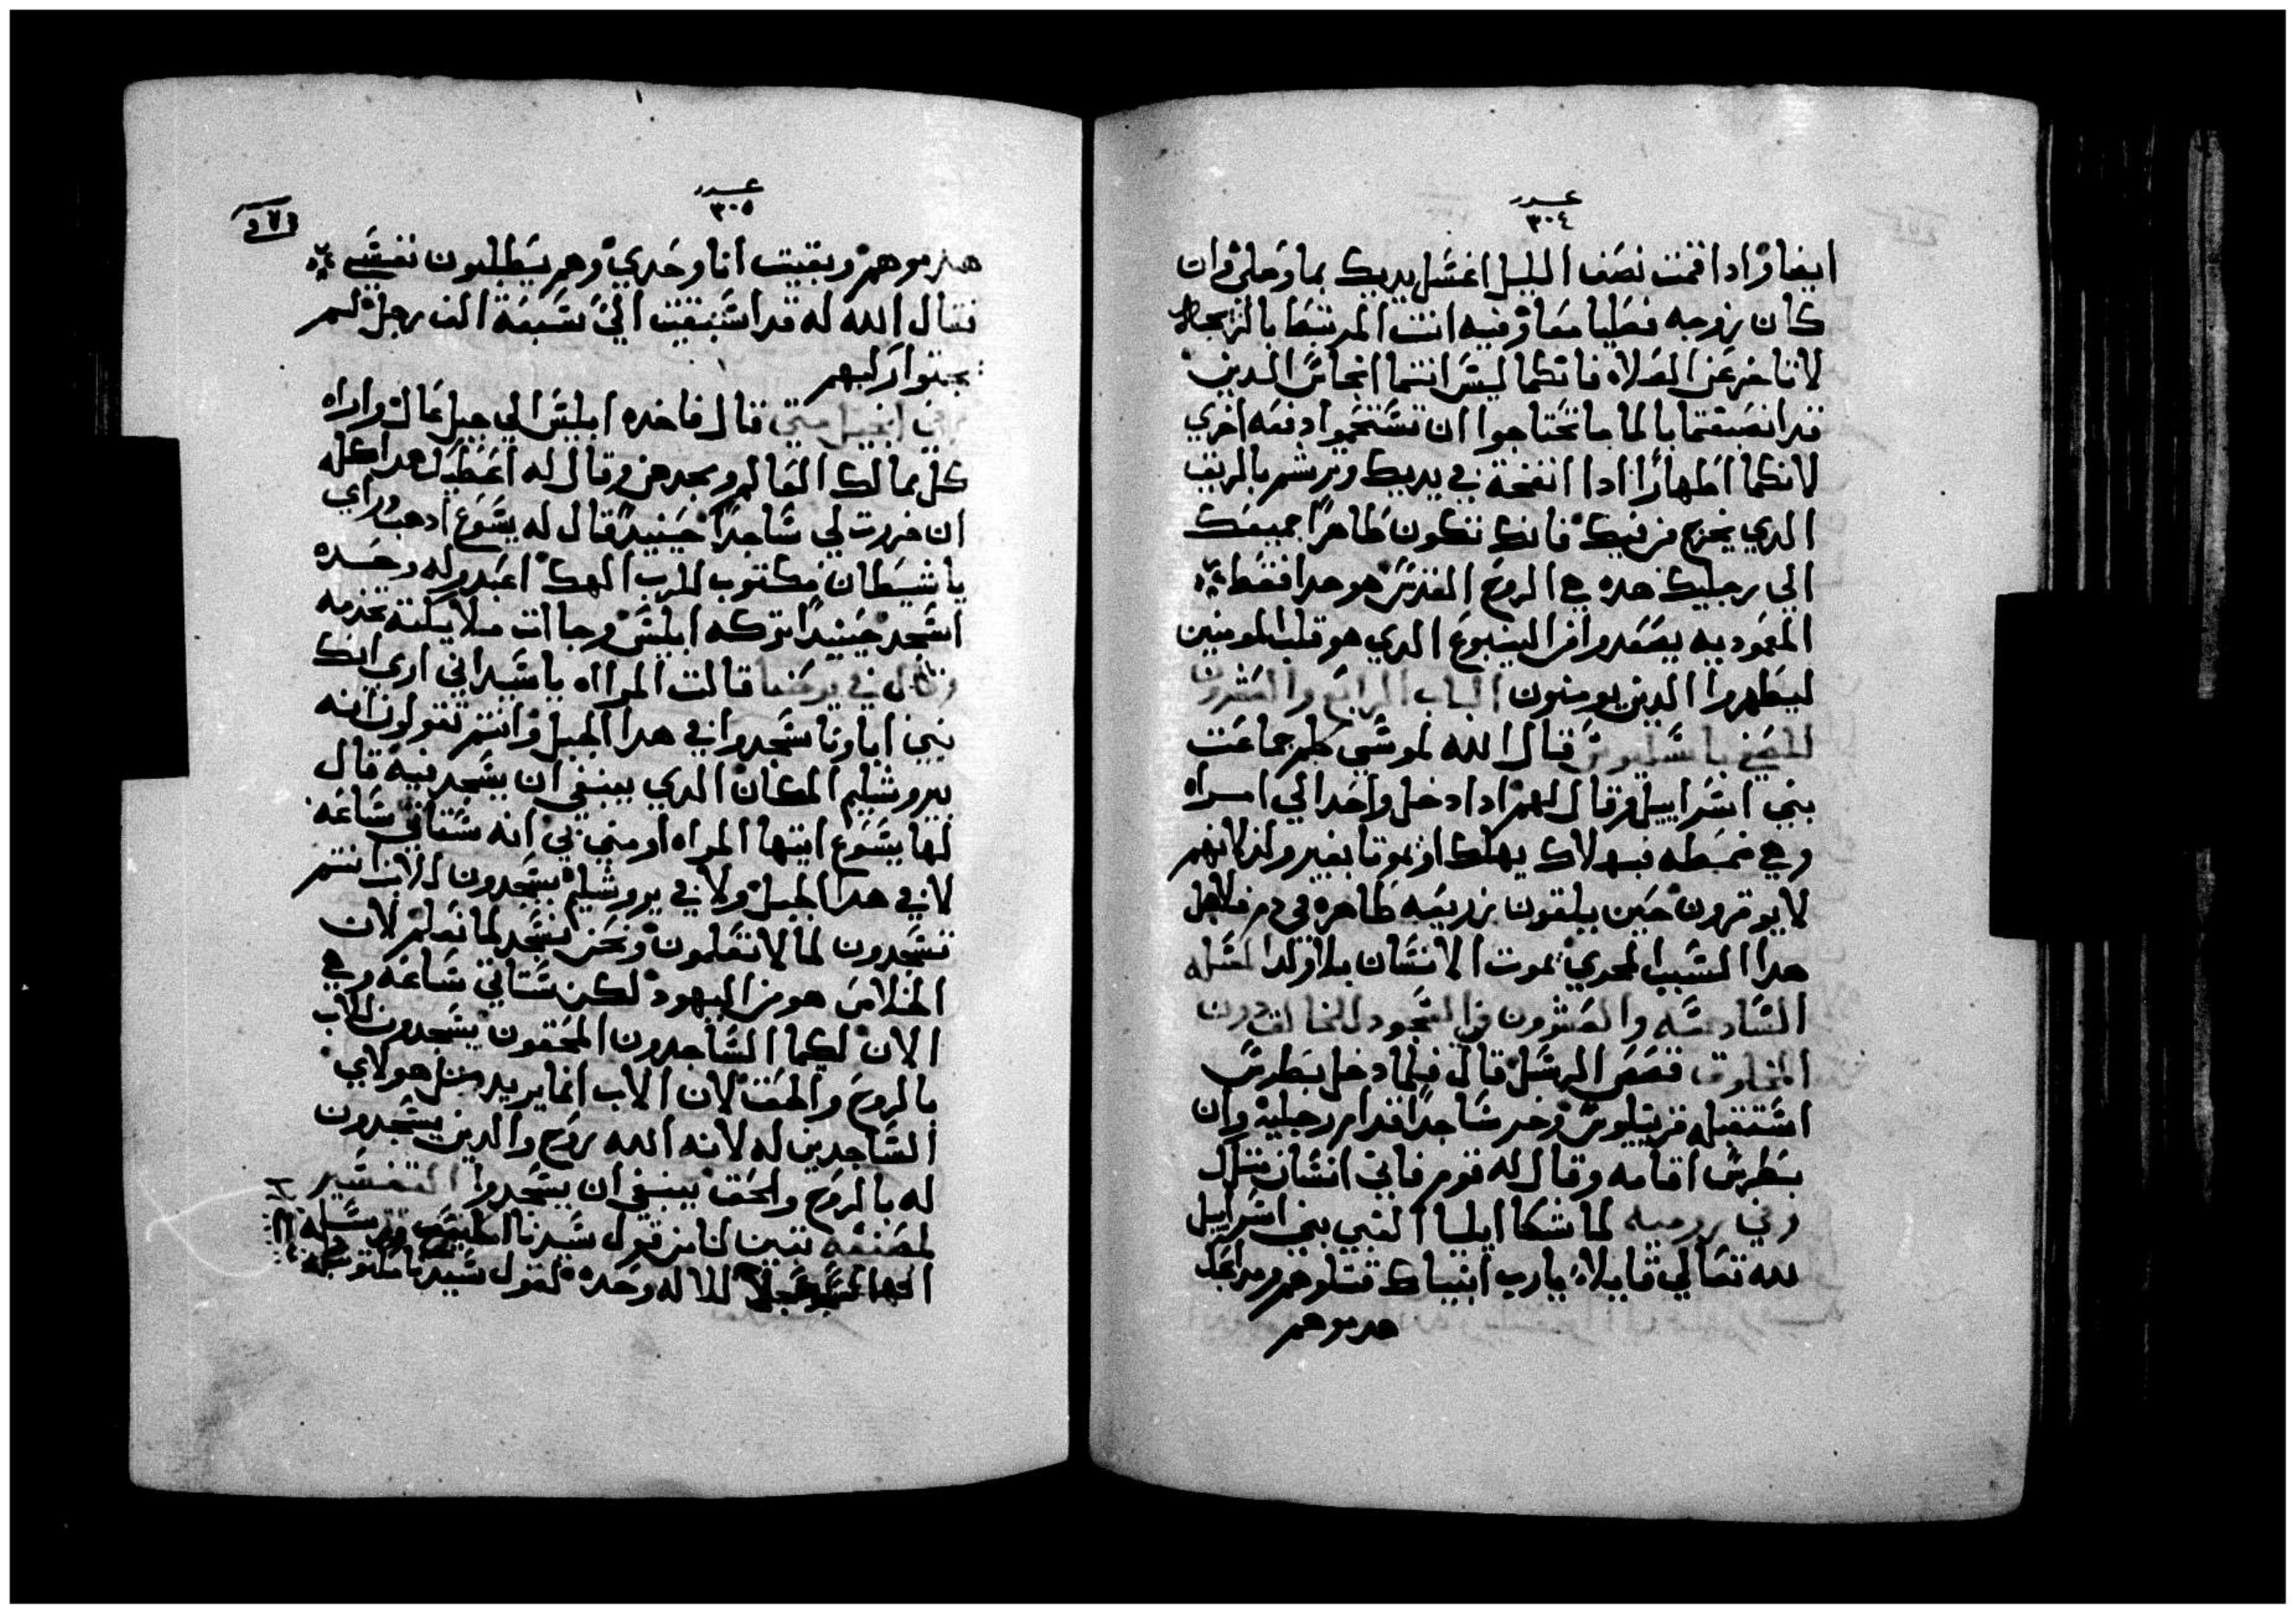 عدد
٣٠٤
ايضا واداقمت نصف الليل اغسل يديك بما وصلي وان
كان زوجه فصليا معا وفيه انت المرتبط بالزيجه
لا تاخر عن الصلاه فانكما ليس انتما انجاس الدين
قد انصبغتما بالما ما تحتاجوا ان تستحموا دفعه اخري
لانكما اطهارا ادا انفخة في يديك وترشم بالريق
الدي يخرج من فيك فانك تكون طاهرا جميعك
الي رجليك هده هي الروح القدس هو هدا فقط
المعموديه يصعدوا من الينبوع الدي هو قلب المومنين
ليطهروا الدين يومنون الباب الرابع والعشرون
قال الله لموسي كلم جماعت
بني اسراييل وقال لهم ادا دخل واحد الي امراه
وهي فبهلاك يهلك او يموتا بغير ولد لانهم
لا يوقرون حين يلقون زريعه طاهره في دم فلاجل
هدا السبب المحري يموت الانسان بلا ولد
السادسه والعشرون في السجود للخالق دون
المخلوق قصص الرسل قال فلما دخل بطرس
استقبله قرنيليوس وخر ساجدا قدام رجليه وان
بطرس اقامه وقال له قوم فاني انسان متلك
وفي روميه لما شكا ايليا النبي بني اسراييل
لله تعالي قايلا يارب انبياك قتلوهم ومدابحك
هدموهم
عدد
٣٠٥
هدموهم وبقيت انا وحدي وهم يطلبون نفسي
فقال الله له قد استبقيت الي سبعة الف رجل لم
يجتوا ركبهم
في انجيل متي قال فاخده ابليس الي جبل عال واراه
كل ممالك العالم ومجدهن وقال له اعطيك هدا كله
ان خررت لي ساجدا حينيد قال له يسوع ادهب وراي
يا شيطان مكتوب للرب الهك اعبد وله وحده
اسجد حينيدا تركه ابليس وجاات ملايكته تخدمه
وقال في يوحنا قالت المرااه يا سيد اني اري انك
نبي اباونا سجدوا في هدا الجبل وانتم تقولون انه
بيروشليم المكان الدي ينبغي ان يسجد فيه قال
لها يسوع ايتها المراه اومني بي انه ستاتي ساعه
لا في هدا الجبل ولا في يروشليم يسجدون للاب انتم
تسجدون لما لا تعلمون ونحن نسجد لما نعلم لان
الخلاص هو من اليهود لكن ستاتي ساعه وهي
الان لكيما الساجدون المحقون يسجدون للاب
بالروح والحق لان الاب انما يريد متل هولاي
الساجدين له لانه الله روح والدين يسجدون
له بالروح والحق ينبغي ان يسجدوا التفسير
لمصنفه تبين لنا من قول سيدنا
الا لله وحده لقول سيدنا